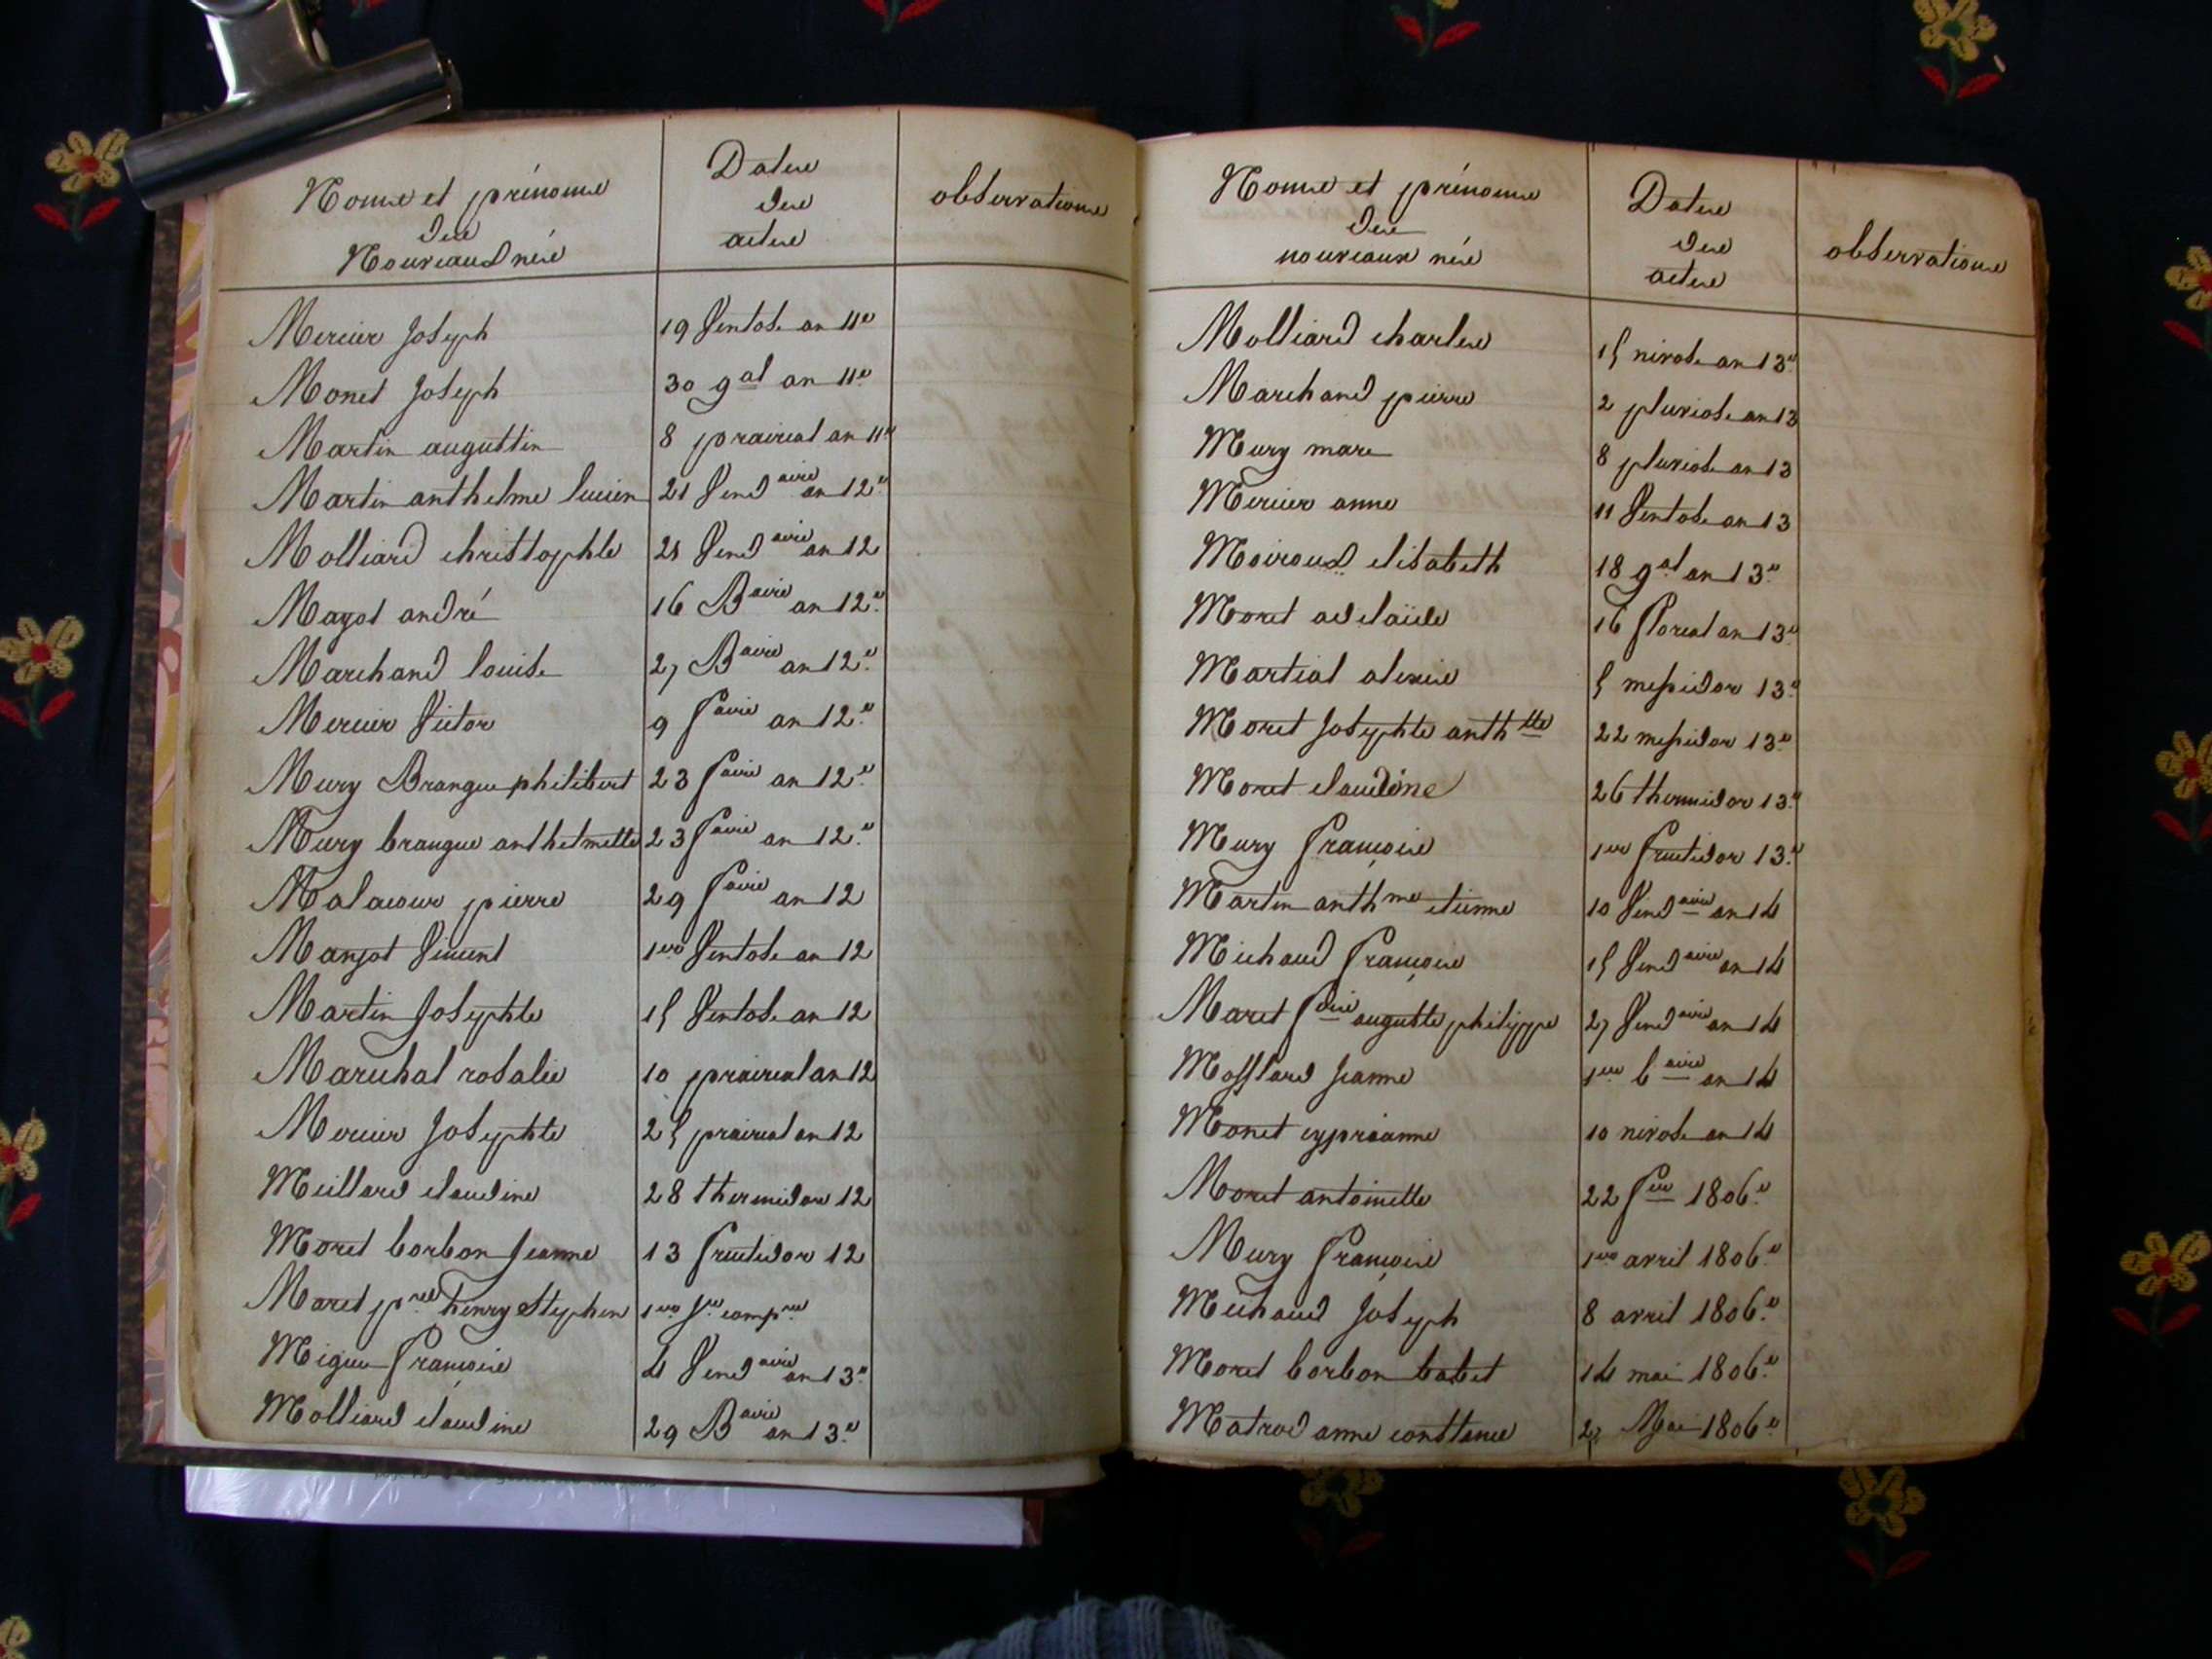 Noms et prénoms
des
Nouveaux nés
Dates
des
actes
observations
Mercier Joseph 19 Ventose an 11e
Monet Joseph 30 gal an 11e
Martin augustin 8 prairial an 11e
Martin anthelme lucien 21 Vendaire an 12e
Molliard christophle 28 Vendaire an 12
Magot andré 16 Baire an 12e
Marchand louise 27 Baire an 12e
Mercier Victor 9 faire an 12e
Mury Brangue philibert 23 faire an 12e
Mury brangue anthelmette 23 faire an 12e
Malacour pierre 29 faire an 12
Manjot Vincent 1er Ventose an 12
Martin Josephte 15 Ventose an 12
Marechal rosalie 10 prairial an 12
Mercier Josephte 25 prairial an 12
Meillard claudine 28 thermidor 12
Moret borbon Jeanne 13 fructidor 12
Maret henry Stephen 1er Jr comp
Migue françoise 4 Vendaire an 13e
Molliard claudine 29 Baire an 13e
Noms et prénoms
des
nouveaux nés
Dates
des
actes
observations
Molliard charles 15 nivose an 13e
Marchand pierre 2 pluviose an 13
Mury marc 8 pluviose an 13
Mercier anne 11 Ventose an 13
Moiroud elisabeth 18 gal an 13e
Moret adelaïde 16 floreal an 13e
Martial alexis 5 messidor 13e
Moret Josephte anthtte 22 messidor 13e
Moret claudine 26 thermidor 13e
Mury françois 1er fructidor 13e
Martin anthme etienne 10 Vendaire an 14
Michaud françois 15 Vendaire an 14
Maret auguste philippe 27 Vendaire an 14
Mosslard Jeanne 1er baire an 14
Monet cyprianne 10 nivose an 14
Moret antoinette 22 1806e
Mury françois 1er avril 1806e
Michaud Joseph 8 avril 1806e
Moret borbon babet 14 mai 1806e
Matrod anne constance 27 Mai 1806e